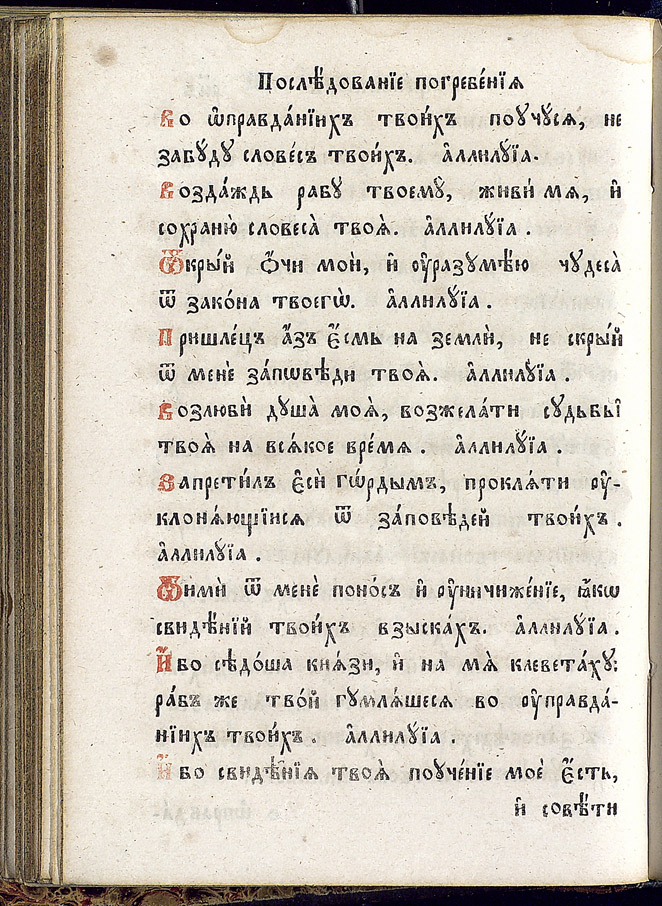 Послѣ́дованїе погребе́нїѧ
Во ѡ҆правда́нїихъ твои́хъ поꙋчꙋ́сѧ, не
забꙋ́дꙋ слове́съ твои́хъ. а҆ллилꙋ́їа.
Возда́ждь рабꙋ̀ твоемꙋ̀, живи́ мѧ, и҆
сохраню̀ словеса̀ твоѧ̀. а҆ллилꙋ́їа.
Ѿкры́й ѻ҆́чи моѝ, и҆ оу҆разꙋмѣ́ю чꙋдеса̀
ѿ зако́на твоегѡ̀. а҆ллилꙋ́їа.
Пришле́цъ а҆́зъ є҆́смь на землѝ, не скры́й
ѿ менѐ за́пѡвѣди твоѧ̀. а҆ллилꙋ́їа.
Возлюбѝ дꙋша̀ моѧ̀, возжела́ти сꙋдьбы̑
твоѧ̀ на всѧ́кое вре́мѧ. а҆ллилꙋ́їа.
Запрети́лъ є҆сѝ гѡ́рдымъ, проклѧ́ти оу҆-
клонѧ́ющїисѧ ѿ за́повѣдей твои́хъ.
а҆ллилꙋ́їа.
Ѿимѝ ѿ менѐ поно́съ и҆ оу҆ничиже́нїе, ꙗ҆́кѡ
свидѣ́нїй твои́хъ взыска́хъ. а҆ллилꙋ́їа.
И҆́бо сѣдо́ша кнѧ́зи, и҆ на мѧ̀ клевета́хꙋ:
ра́бъ же тво́й гꙋмлѧ́шесѧ во оу҆правда́-
нїихъ твои́хъ. а҆ллилꙋ́їа.
И҆́бо свидѣ́нїѧ твоѧ̀ поꙋче́нїе моѐ є҆́сть,
и҆ совѣ́ти